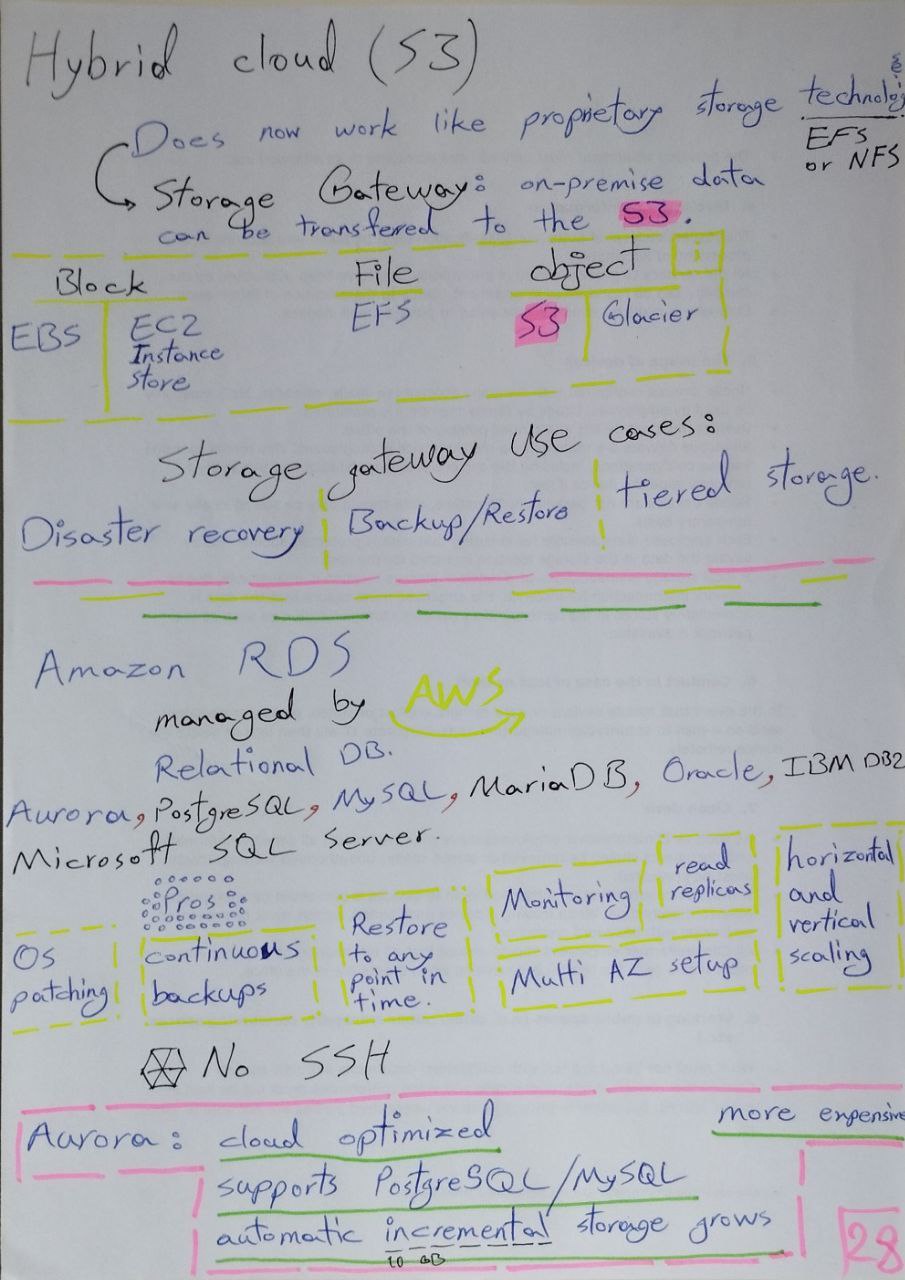 Hybrid cloud (S3)
Does now work like proprietary storage technologi
EFS
or NFS
Storage Gateway: on-premise data
can be transfered to the S3.
Block File object i
EBS EC2 EFS S3 Glacier
Instance
store
Storage gateway use cases:
Disaster recovery Backup/Restore tiered storage.
Amazon RDS
managed by AWS
Relational DB.
Aurora, PostgreSQL, MySQL, MariaDB, Oracle, IBM DB2
Microsoft SQL Server.
Pros
OS
patching
continuous
backups
Restore
to any
point in
time.
Monitoring
read
replicas
Multi AZ setup
horizontal
and
vertical
scaling
No SSH
Aurora: cloud optimized more expensive
supports PostgreSQL/MySQL
automatic incremental storage grows
10 GB
28